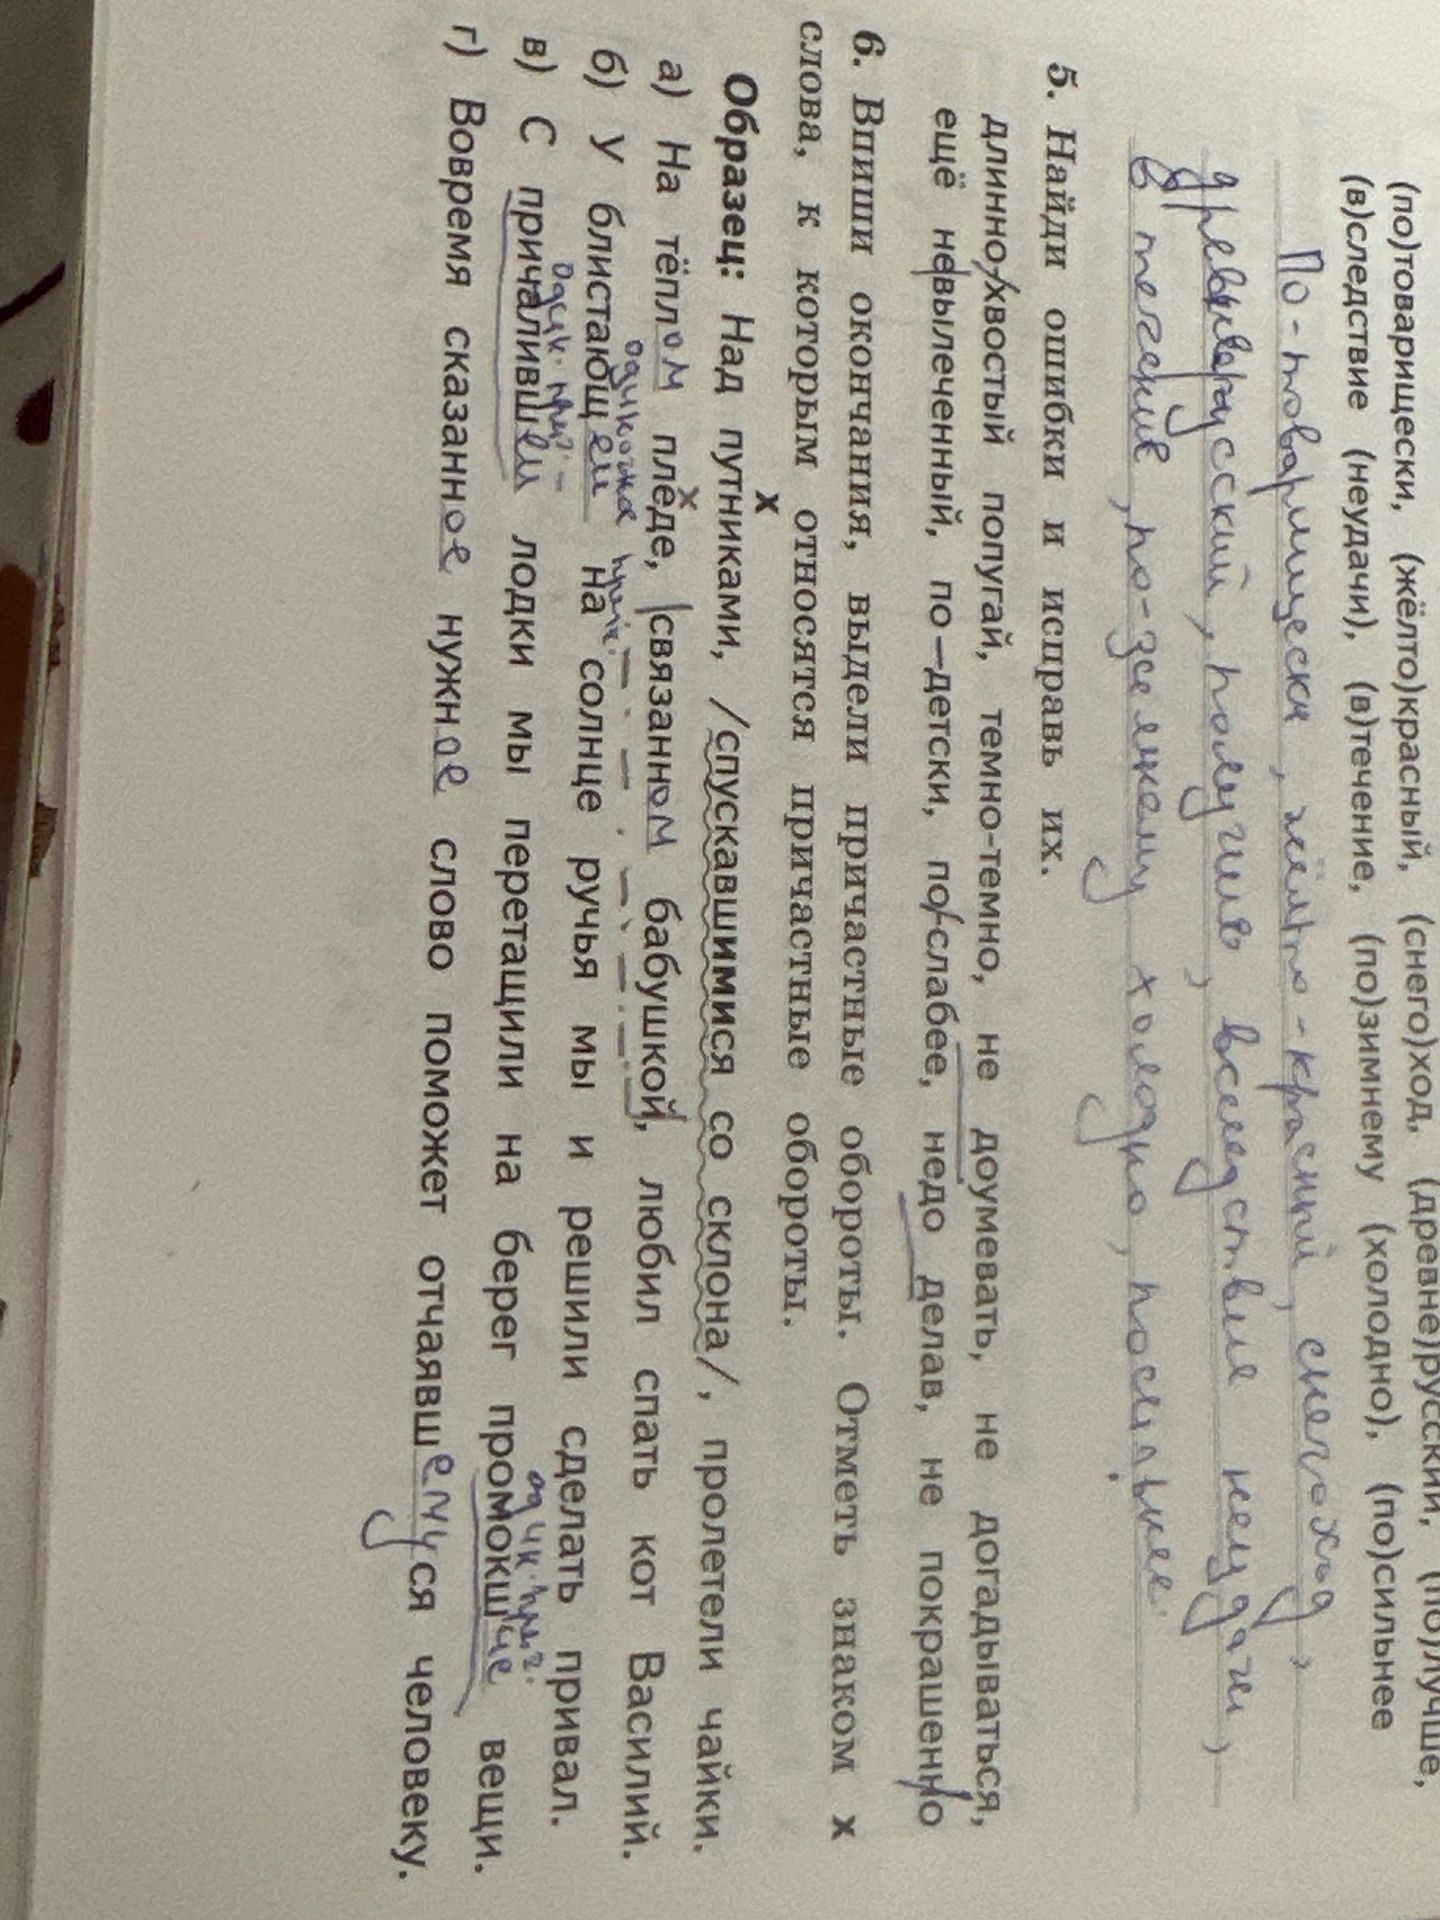 (по)товарищески, (жёлто)красный, (снего)ход, (древне)русский, (по)лучше,
(в)следствие (неудачи), (в)течение, (по)зимнему (холодно), (по)сильнее
По-товарищески, жёлто-красный, снегоход,
древнерусский, получше, вследствие неудачи,
в течение, по-зимнему холодно, посильнее.
5. Найди ошибки и исправь их.
длинно-хвостый попугай, темно-темно, не доумевать, не догадываться,
ещё невылеченный, по—детски, по-слабее, недо делав, не покрашенно
6. Впиши окончания, выдели причастные обороты. Отметь знаком х
слова, к которым относятся причастные обороты.
х
Образец: Над путниками, /спускавшимися со склона/, пролетели чайки.
х
а) На тёплом пледе, |связанном бабушкой|, любил спать кот Василий.
одиночное прич.
б) У блистающей на солнце ручья мы и решили сделать привал.
один. прич. один. прич.
в) С причалившей лодки мы перетащили на берег промокшие вещи.
г) Вовремя сказанное нужное слово поможет отчаявшемуся человеку.